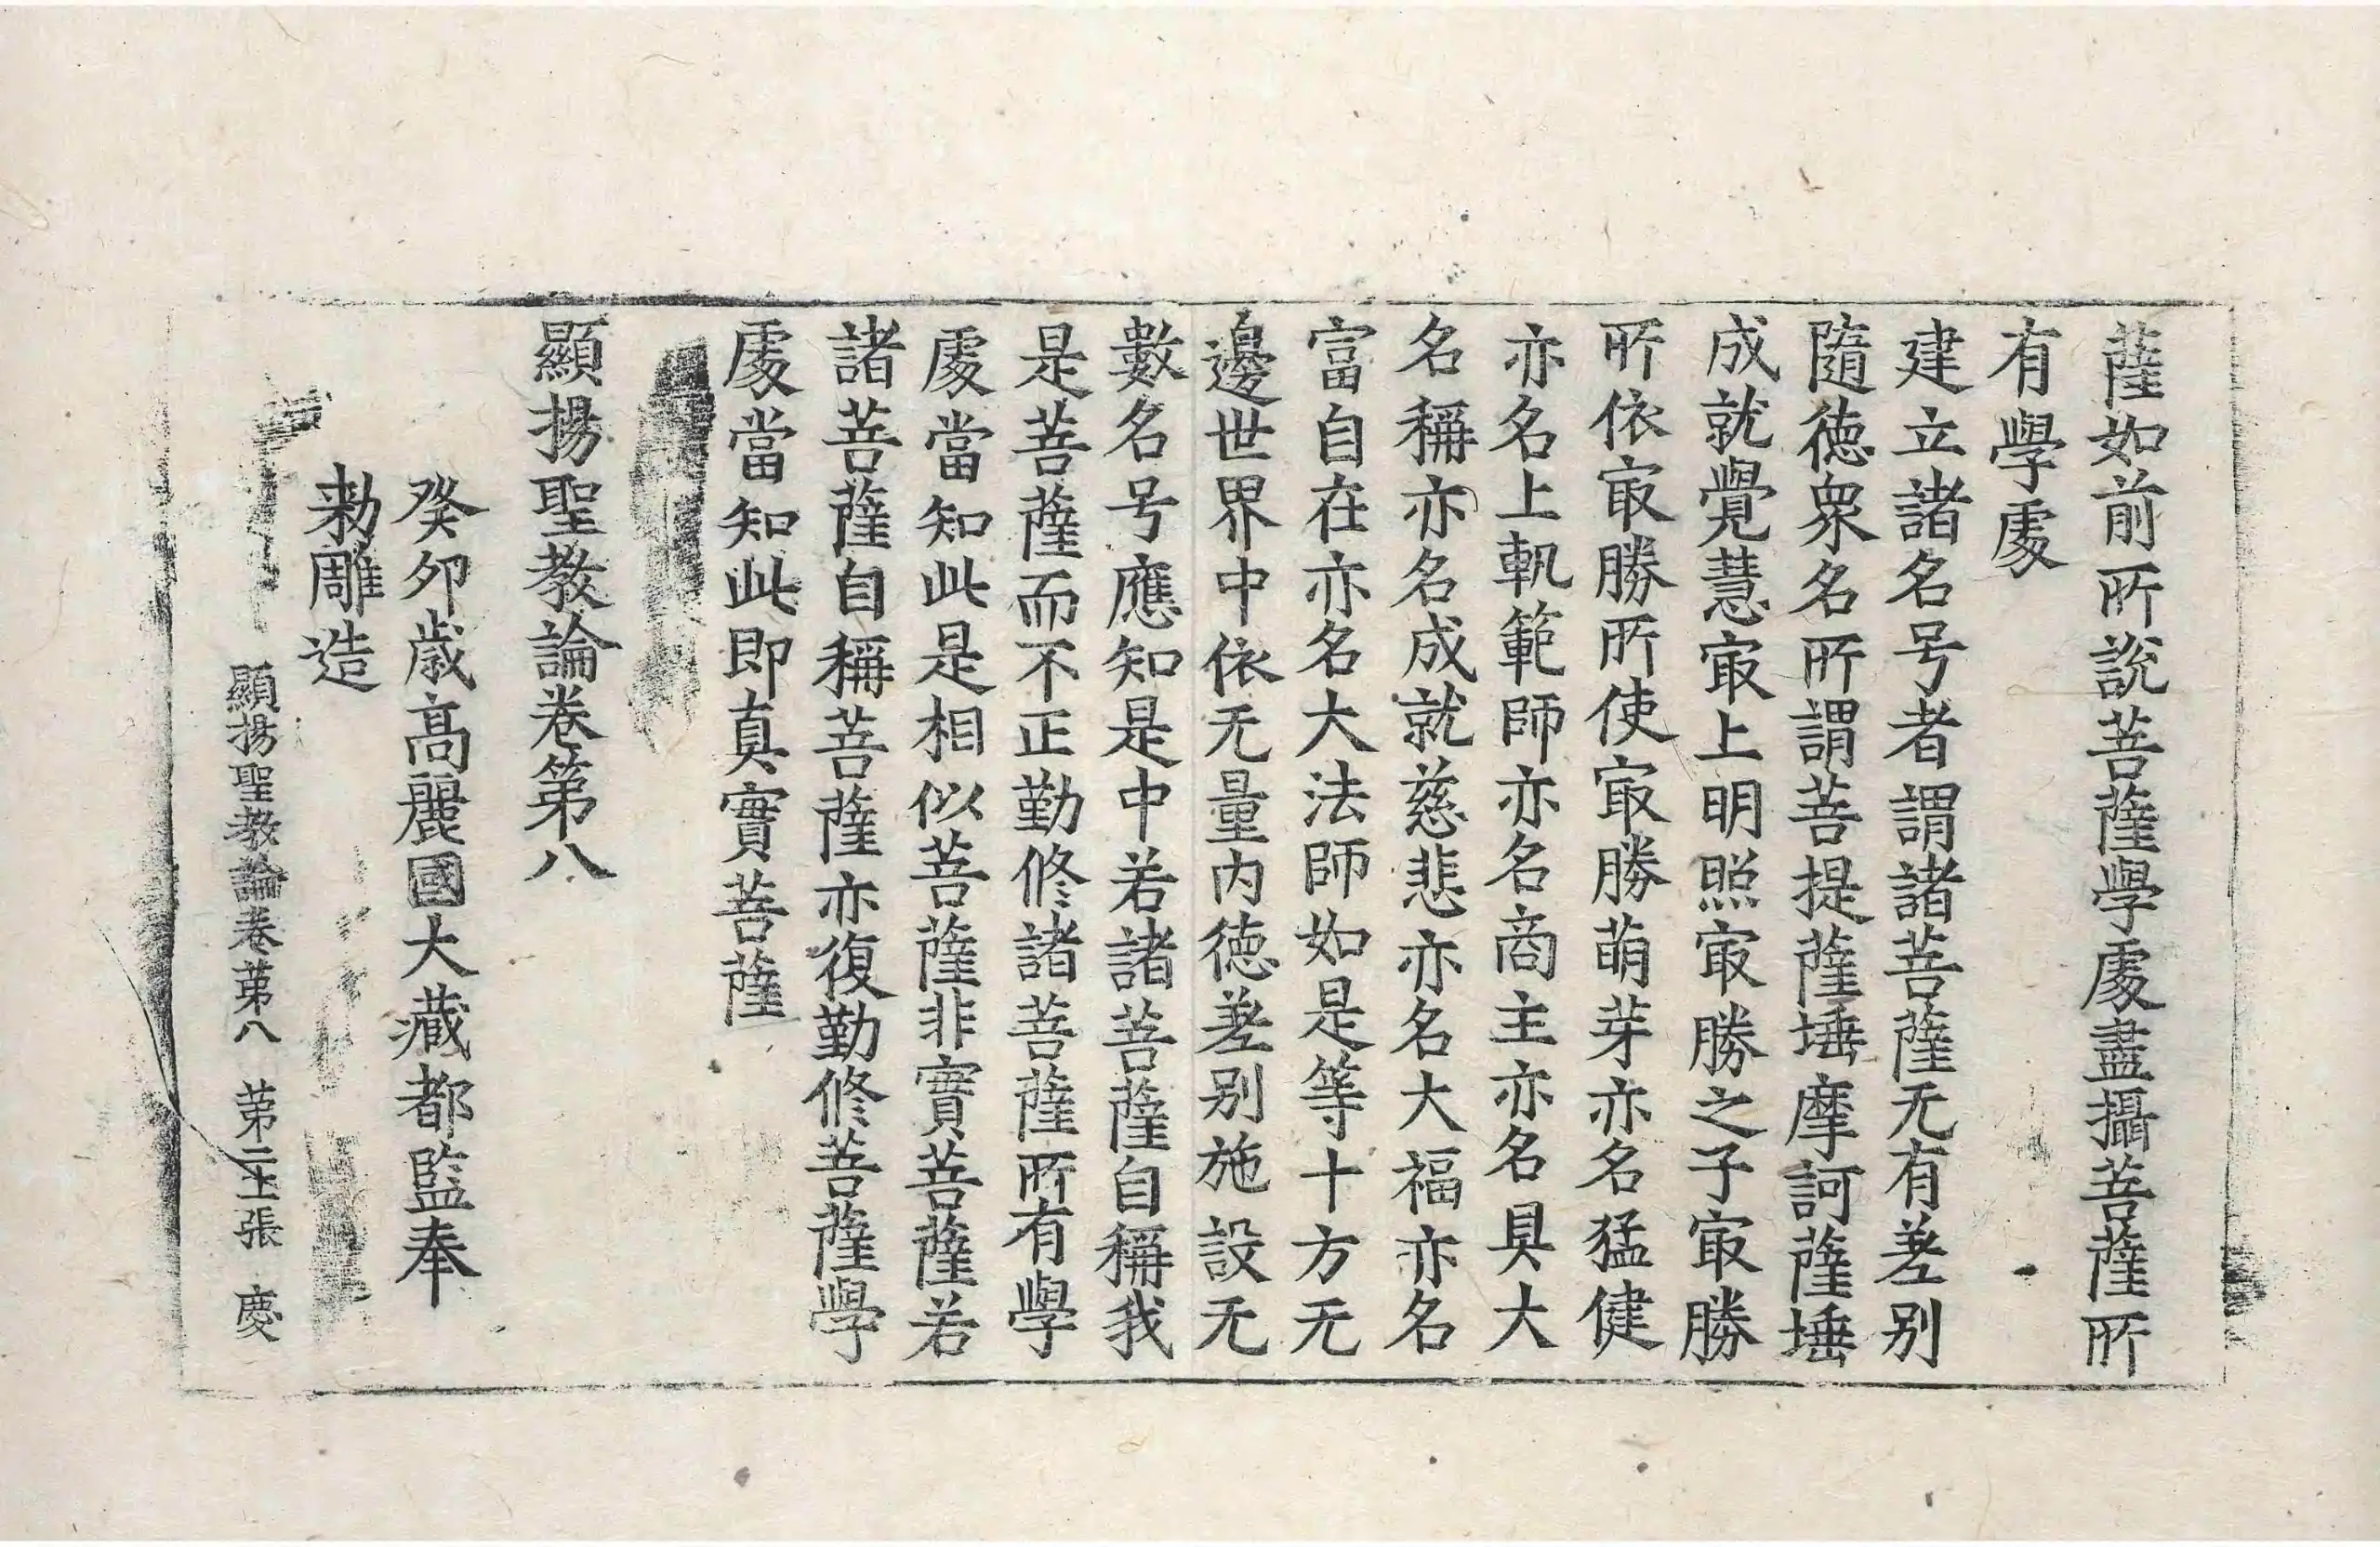 薩如前所說菩薩學處盡攝菩薩所
有學處
建立諸名号者謂諸菩薩无有差別
隨德衆名所謂菩提薩埵摩訶薩埵
成就覺慧㝡上明照㝡勝之子㝡勝
所依㝡勝所使㝡勝萌芽亦名猛健
亦名上軌範師亦名商主亦名具大
名稱亦名成就慈悲亦名大福亦名
富自在亦名大法師如是等十方无
邊世界中依无量內德差別施設无
數名号應知是中若諸菩薩自稱我
是菩薩而不正勤修諸菩薩所有學
處當知此是相似菩薩非實菩薩若
諸菩薩自稱菩薩亦復勤修菩薩學
處當知此即真實菩薩
顯揚聖教論卷第八
癸卯歲高麗國大藏都監奉
勑雕造
顯揚聖教論卷第八 第二十張 慶